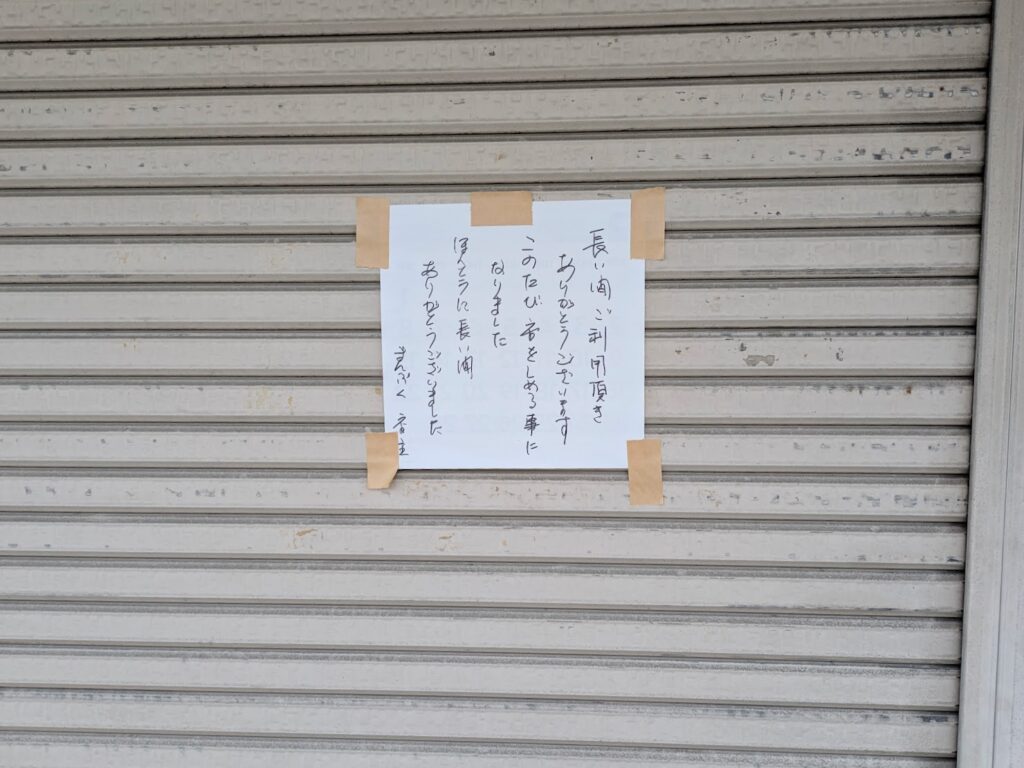 長い間ご利用頂き
ありがとうございます
このたび店をしめる事に
なりました
ほんとうに長い間
ありがとうございました
まんぷく 店主